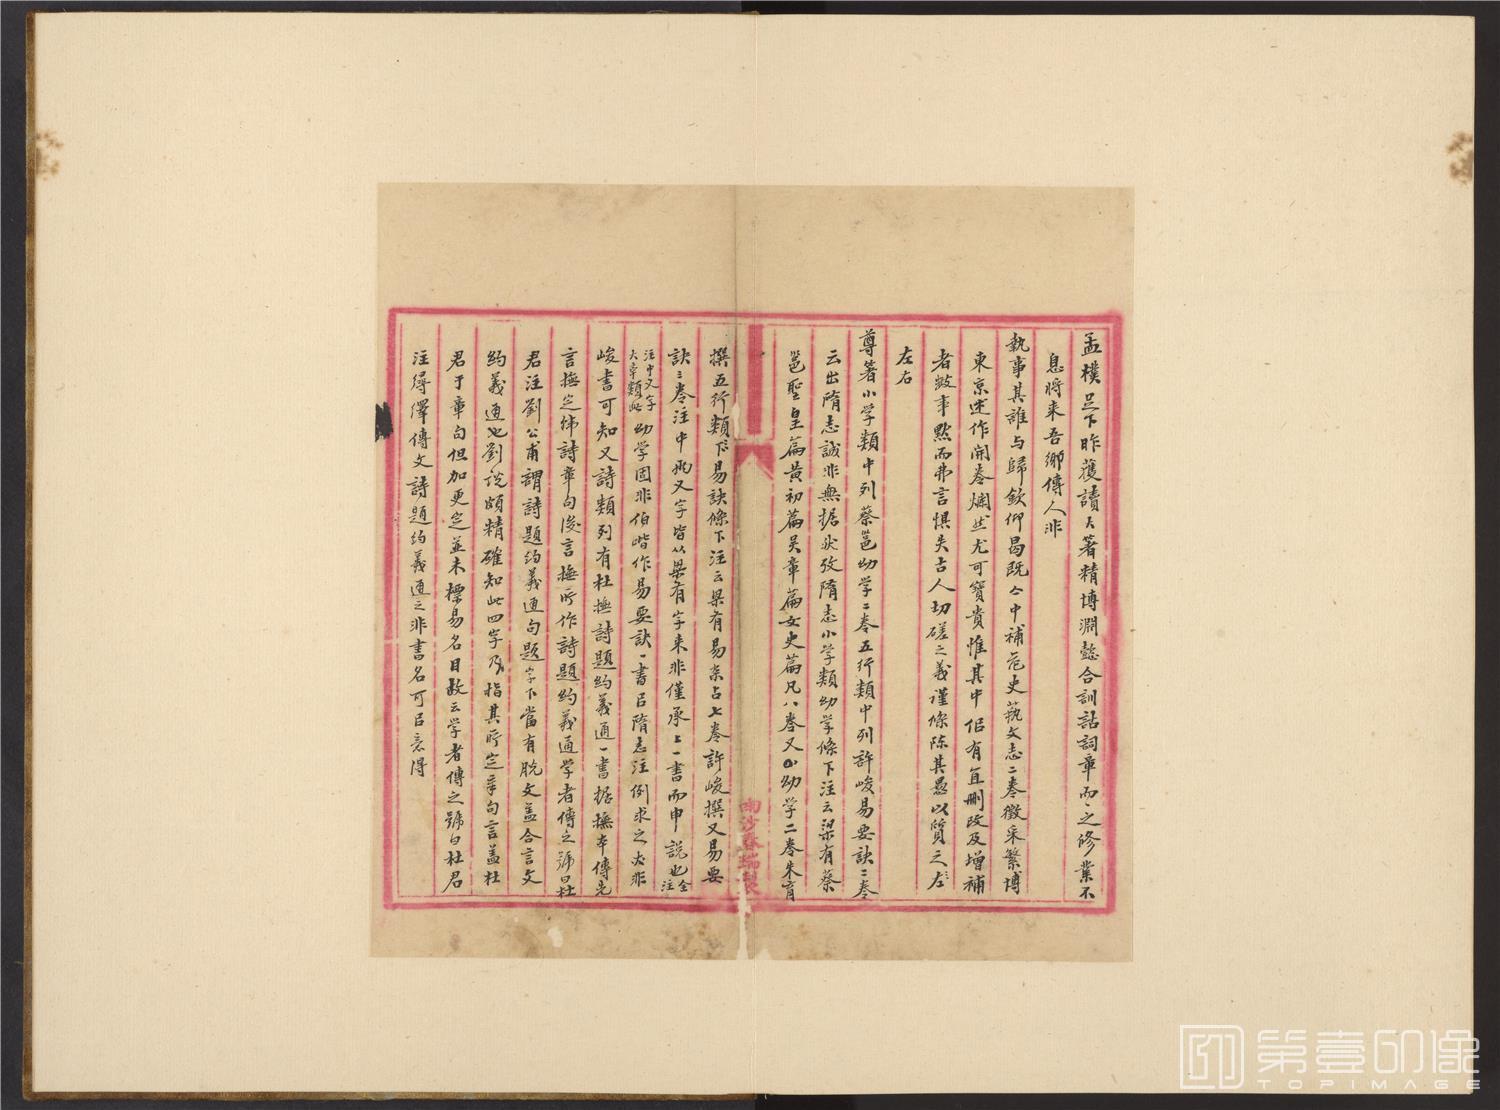 孟樸足下昨獲讀大著精博淵懿合訓詁詞章而一之修業不
息將來吾鄉傳人非
執事其誰與歸欽仰曷既今中補范史藝文志二卷徵采繁博
東京述作開卷爛然尤可寶貴惟其中佀有宜刪改及增補
者數事默而弗言懼失古人切磋之義謹條陳其愚以質之
左右
尊箸小學類中列蔡邕幼學二卷五行類中列許峻易要訣二卷
云出隋志誠非無据狀攷隋志小學類幼學條下注云梁有蔡
邕聖皇篇黃初篇吳章篇女史篇凡八卷又幼學二卷朱育
撰五行類下易訣條下注云梁有易襍占七卷許峻撰又易要
訣三卷注中凡又字皆从梁有字來非僅承上一書而申說也全
注中又字
大率類此幼學固非伯喈作易要訣一書㠯隋志注例求之亦非
峻書可知又詩類列有杜撫詩題約義通一書據撫本傳先
言撫定韓詩章句後言撫所作詩題約義通學者傳之號曰杜
君注劉公甫謂詩題約義通句題字下當有脫文蓋合言文
約義通也劉說頗精確知此四字乃指其所定章句言蓋杜
君于章句但加更定並未標易名目故云學者傳之號曰杜君
注得繹傳文詩題約義通之非書名可㠯意得
第壹印像
TOPIMAGE